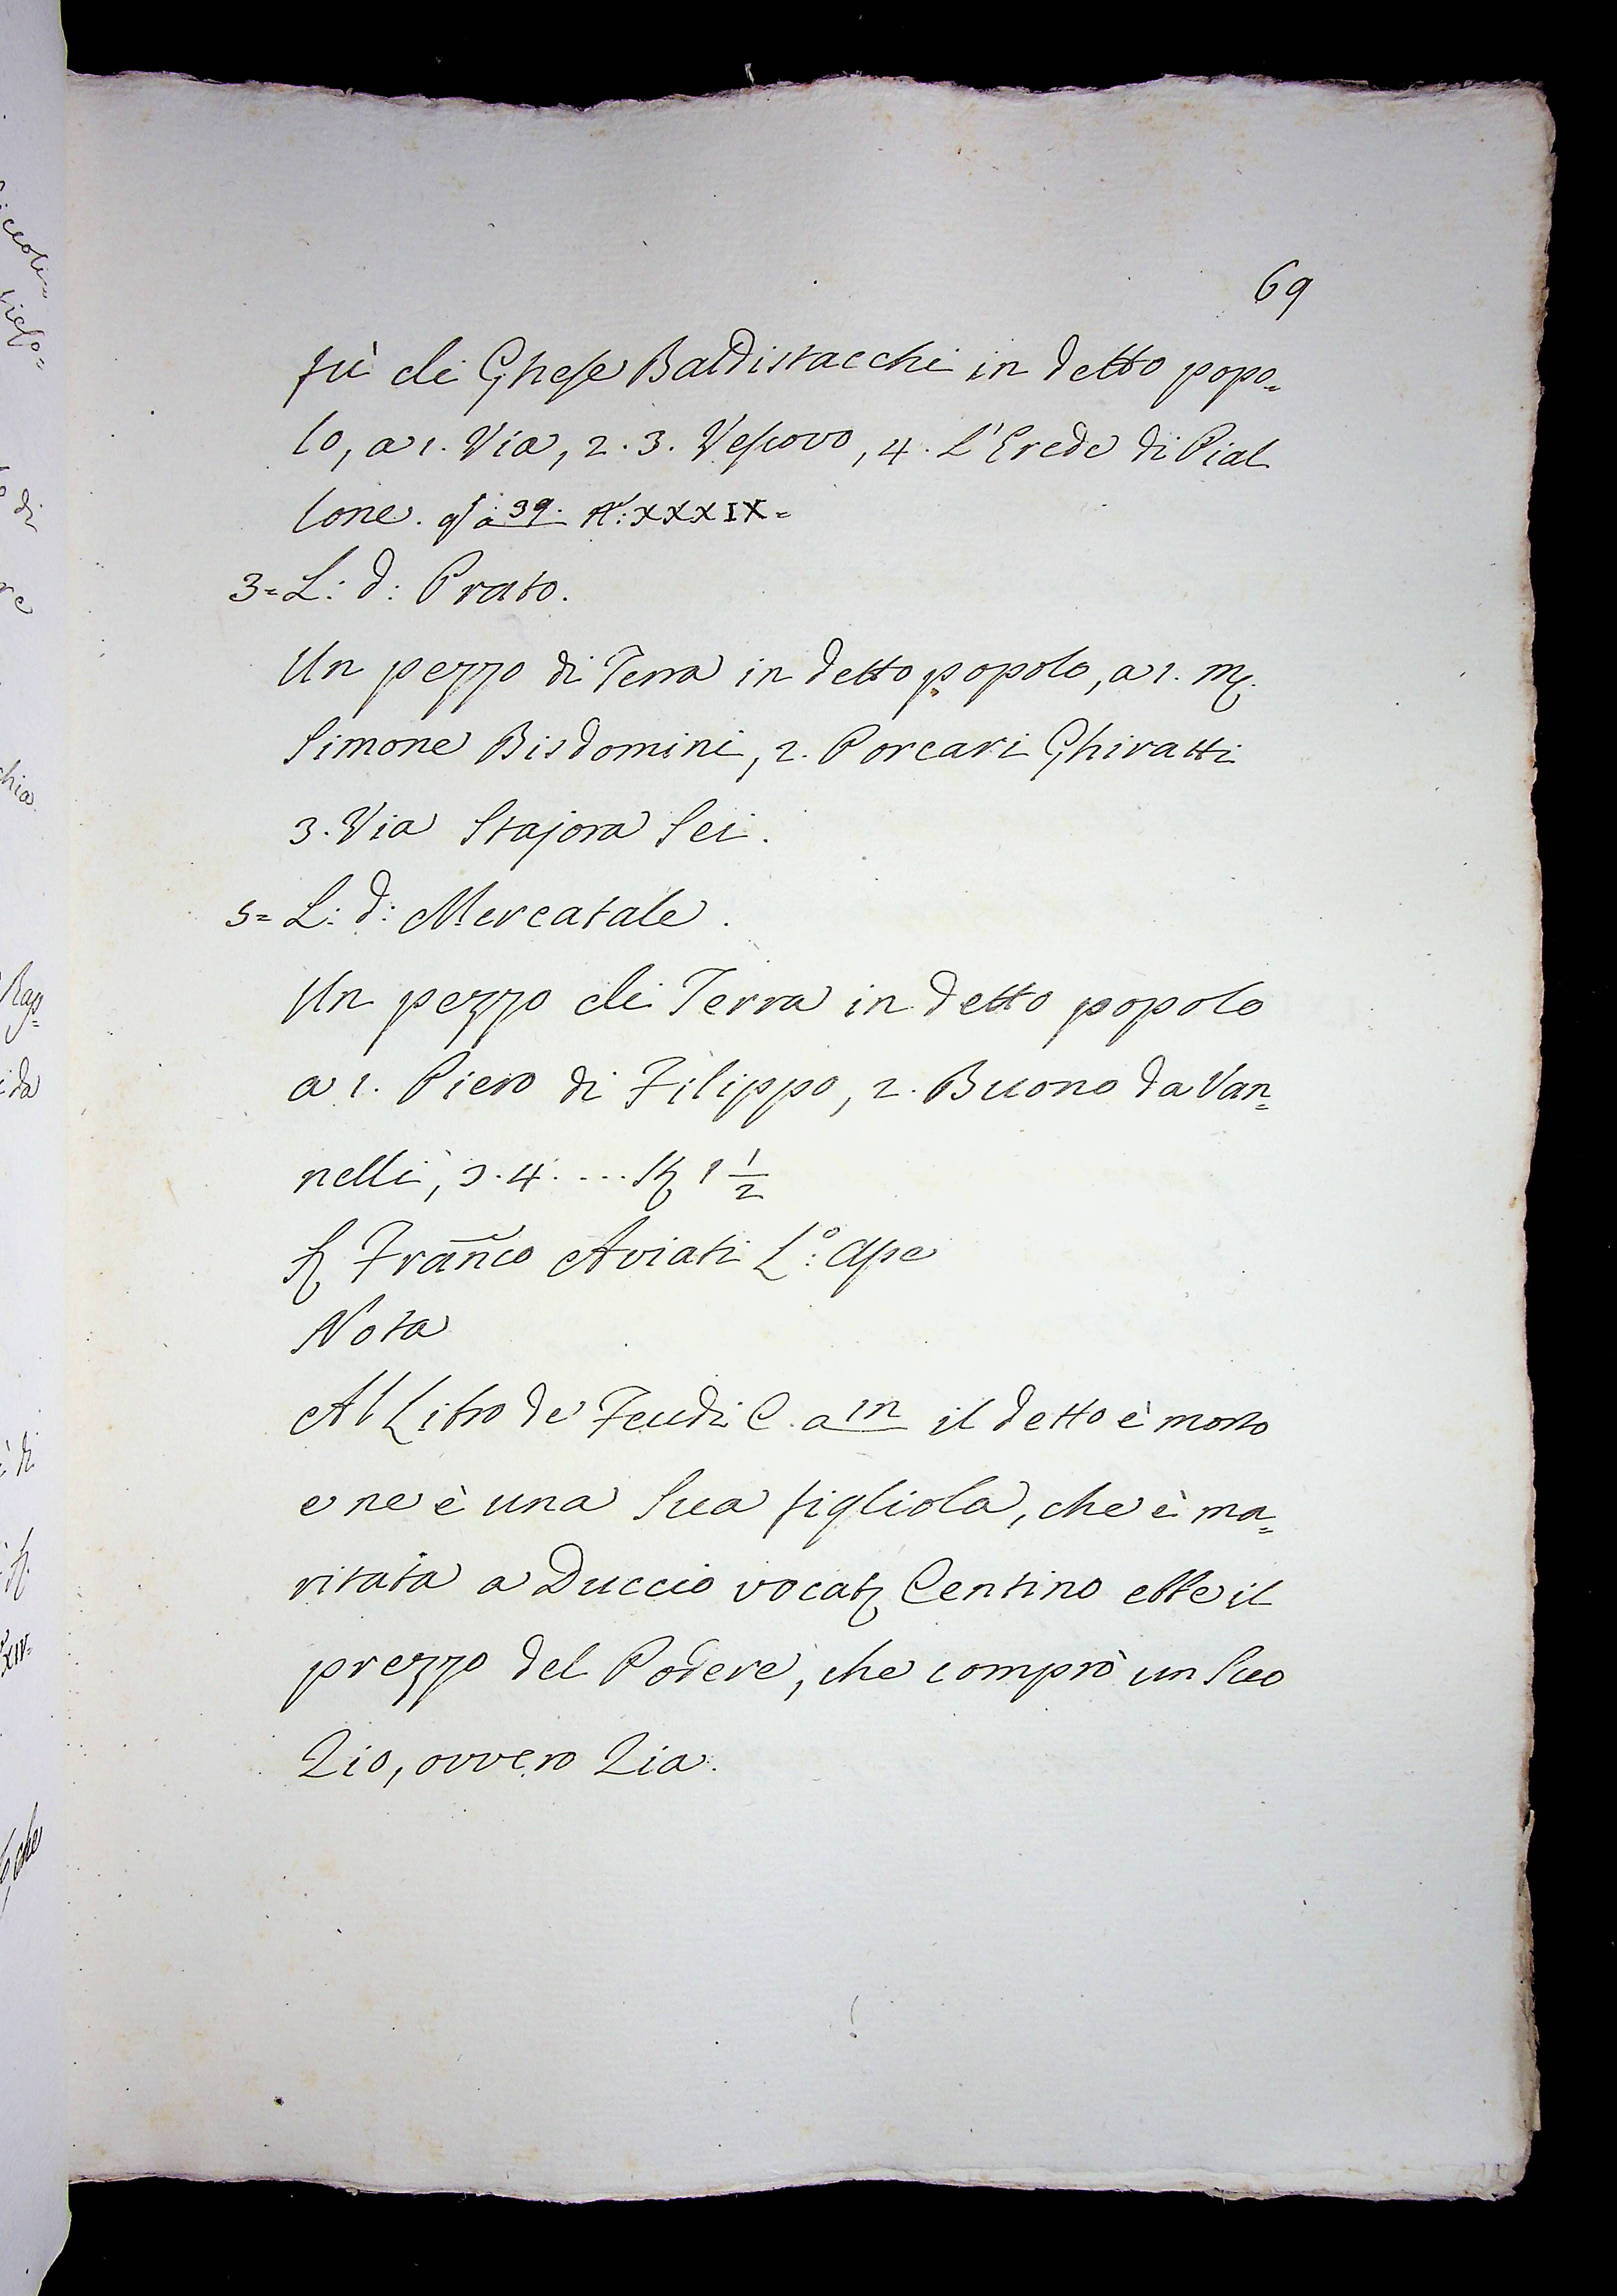 69
fù di Ghese Baldistacchi in detto popo=
lo, a 1. Via, 2. 3. Vescovo, 4. L'Erede di Pial
lone. a 39. N: XXXIX=
3= L: d: Prato.
Un pezzo di Terra in detto popolo, a 1. M.
Simone Bisdomini, 2. Porcari Ghiratti
3. Via Stajora Sei.
5= L: d: Mercatale.
Un pezzo di Terra in detto popolo
a 1. Piero di Filippo, 2. Buono da Van=
nelli, 3. 4. .... St 1 1/2
S Franco Aviati L.º: Ape
Nota
Al Libro de' Feudi C. a il detto è morto
e ne è una Sua figliola, che è ma=
ritata a Duccio vocat Centino ebbe il
prezzo del Podere, che comprò un Suo
Zio, ovvero Zia.